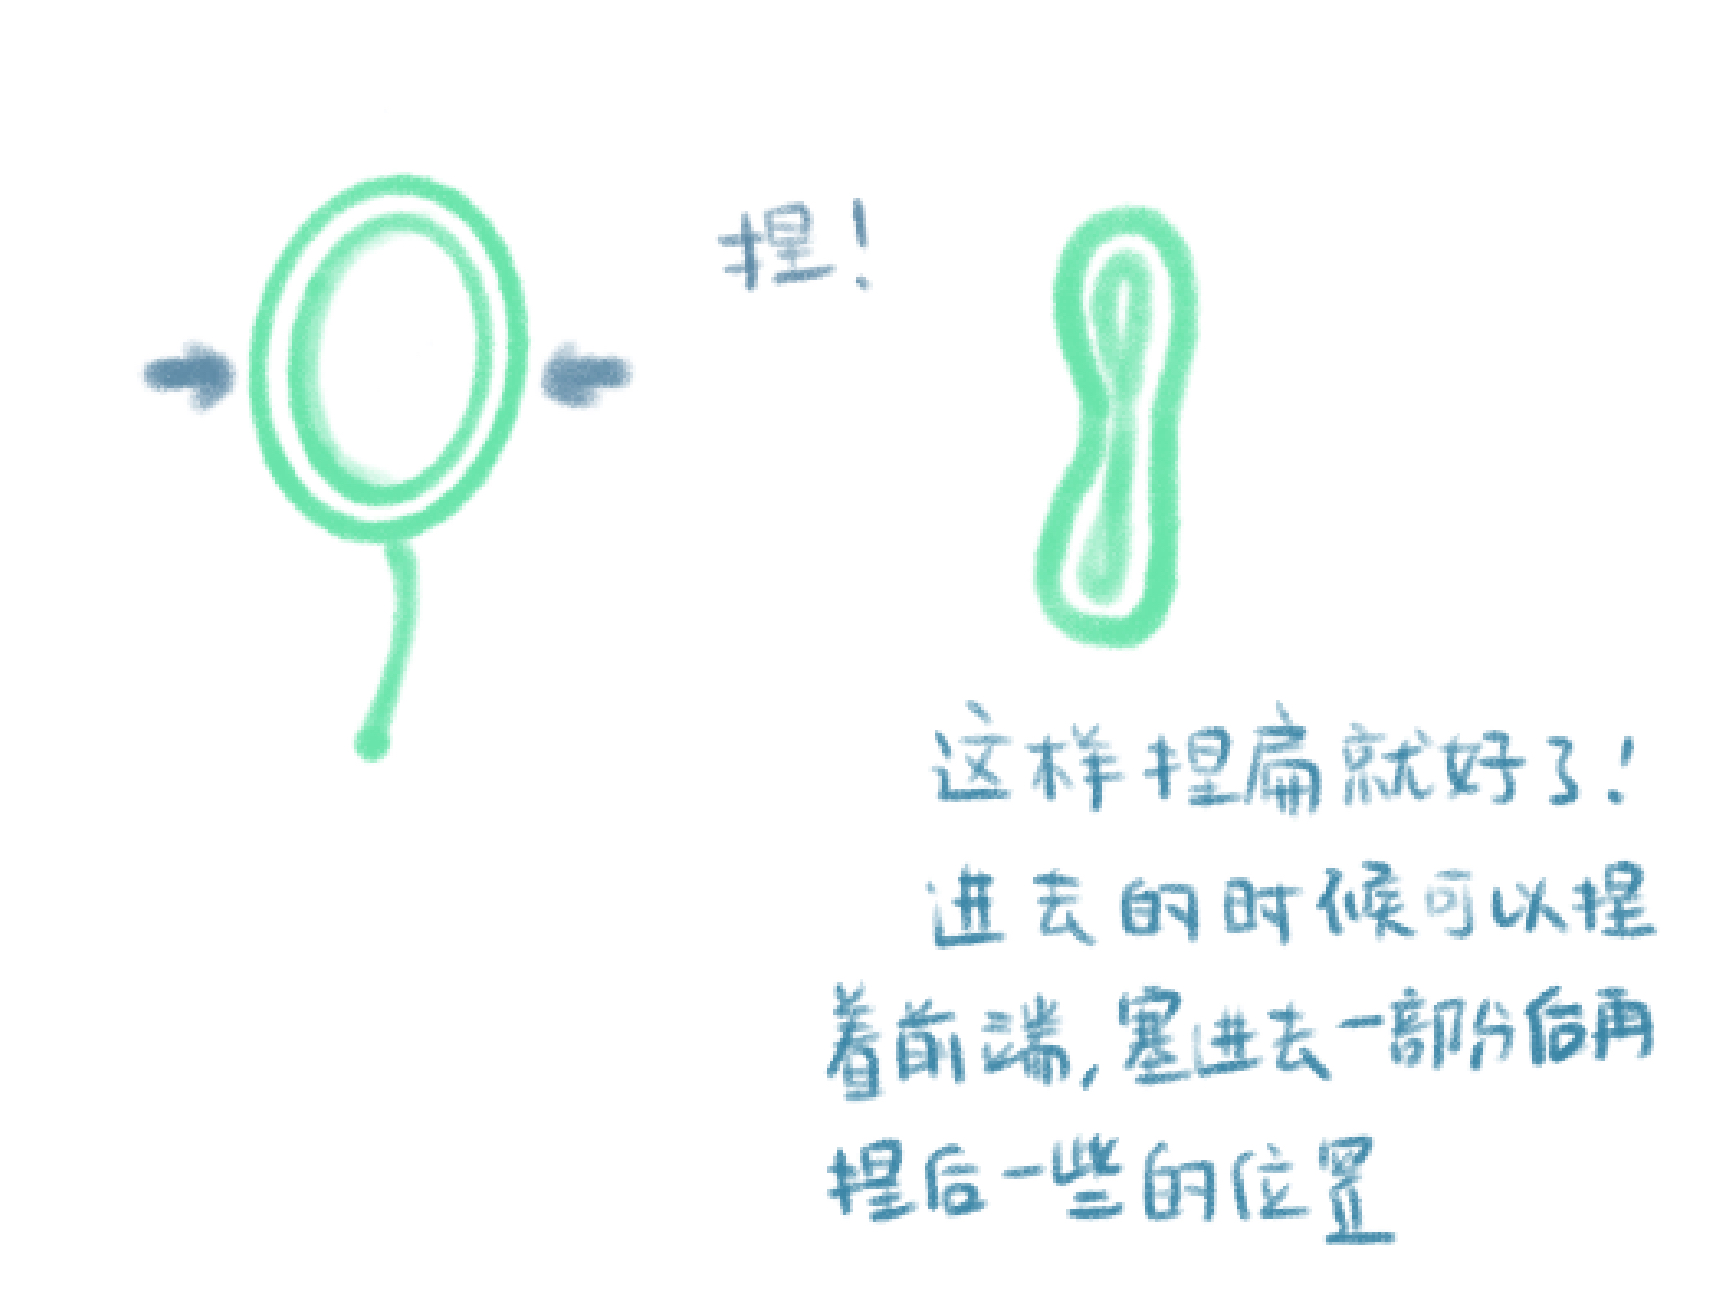 捏!
这样捏扁就好了!
进去的时候可以捏
着前端,塞进去一部分后再
捏后一些的位置